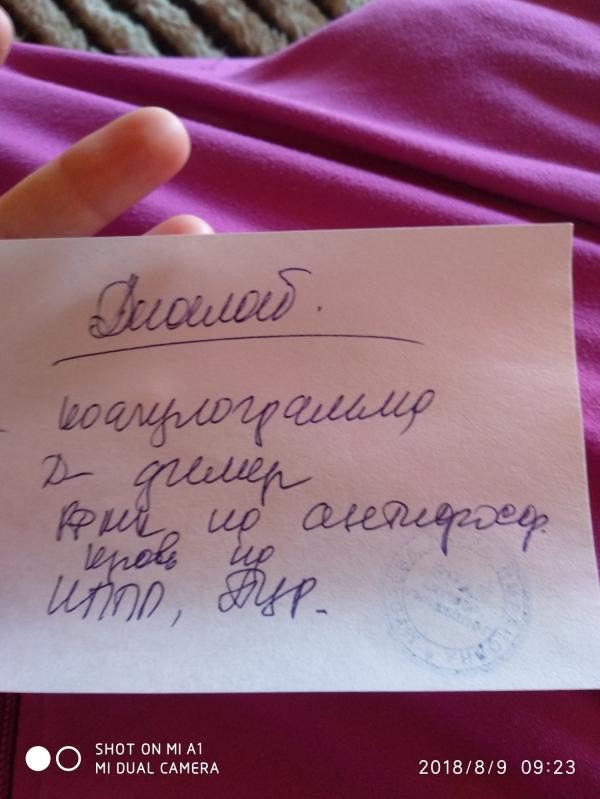 Диалаб.
коагулограмма
Д- димер
РФМК на антифосф.
кровь на
ИППП, ПЦР.
SHOT ON MI A1
MI DUAL CAMERA
2018/8/9 09:23